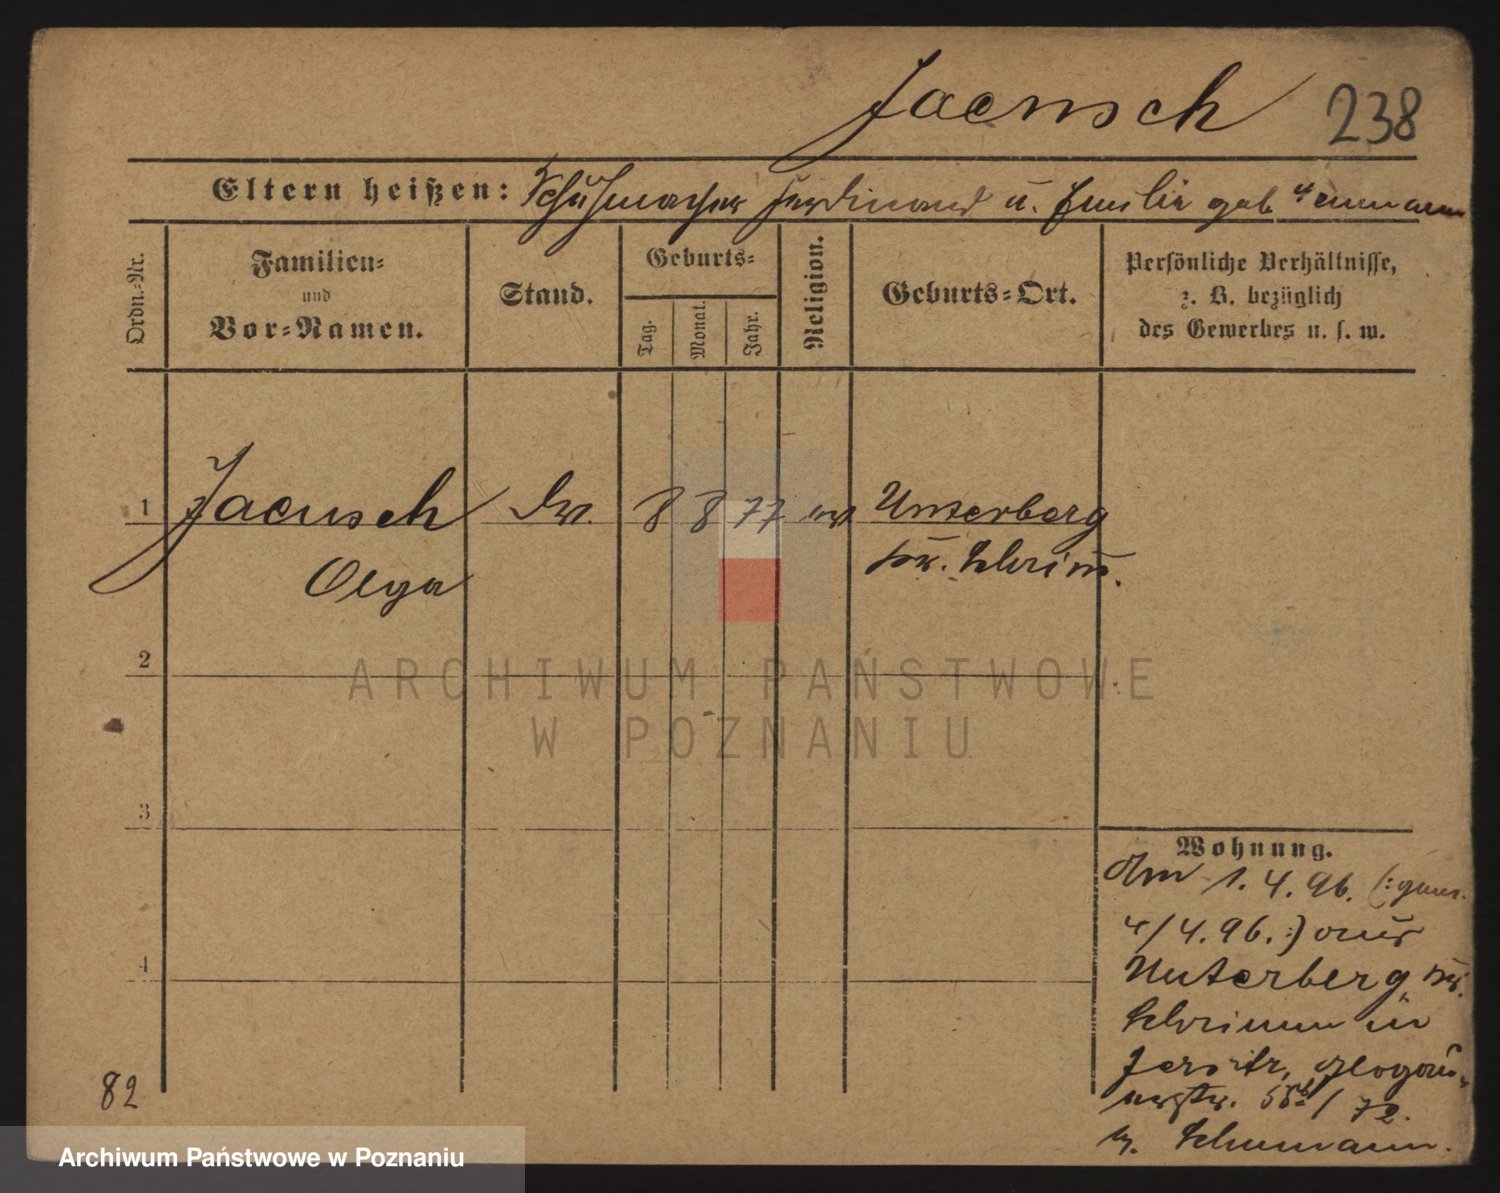 Jaensch 238
Eltern heißen: Schuhmacher Ferdinand u. Emilie geb.
Ordn.-Nr.
Familien-
und
Vor-Namen.
Stand.
Geburts-
Tag.
Monat.
Jahr.
Religion.
Geburts-Ort.
Persönliche Verhältnisse,
z. B. bezüglich
des Gewerbes u. s. w.
1 Jaensch 8 8 77 ev Unterberg
Olga Kr. Schrim̄.
2
ARCHIWUM PAŃSTWOWE
W POZNANIU
3
Wohnung.
Am 1. 4. 96. (: gem.
4/4. 96. :) aus
4 Unterberg, Kr.
Schrimm in
Jersitz, Glogau-
erstr. /72.
82 b. Schumann.
Archiwum Państwowe w Poznaniu